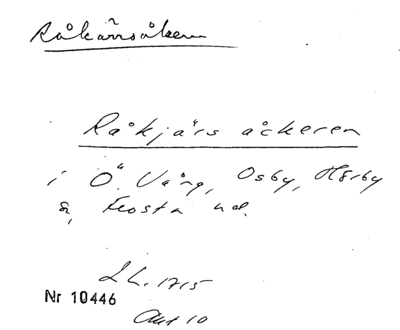 Råkärsåkern
Råkjärs åckeren
i Ö. Vång, Osby, Hörby
s, Frosta hd.
LL. 1715
Nr 10446
Akt 10